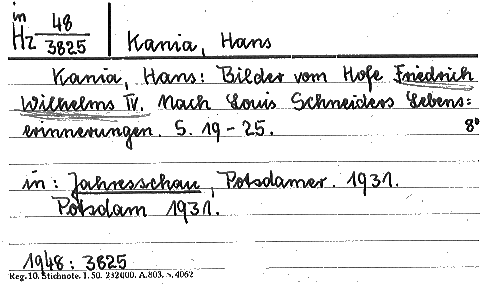 in
Hz 48/3825
Kania, Hans
Kania, Hans: Bilder vom Hofe Friedrich
Wilhelms IV. Nach Louis Schneiders Lebens=
erinnerungen. S. 19-25. 8°
in: Jahresschau, Potsdamer. 1931.
Potsdam 1931.
1948: 3825
Reg. 10. Stichnote. I. 50. 232000. A.803. 4062